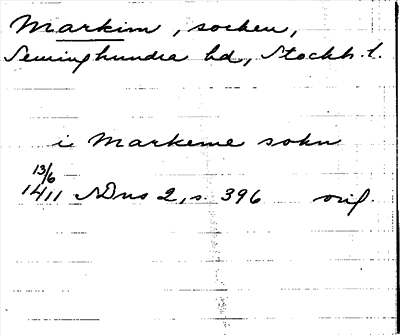 Markim, socken,
Seminghundra hd, Stockh. l.
i Markeme sokn
13/6
1411 SDns 2, s. 396 orig.